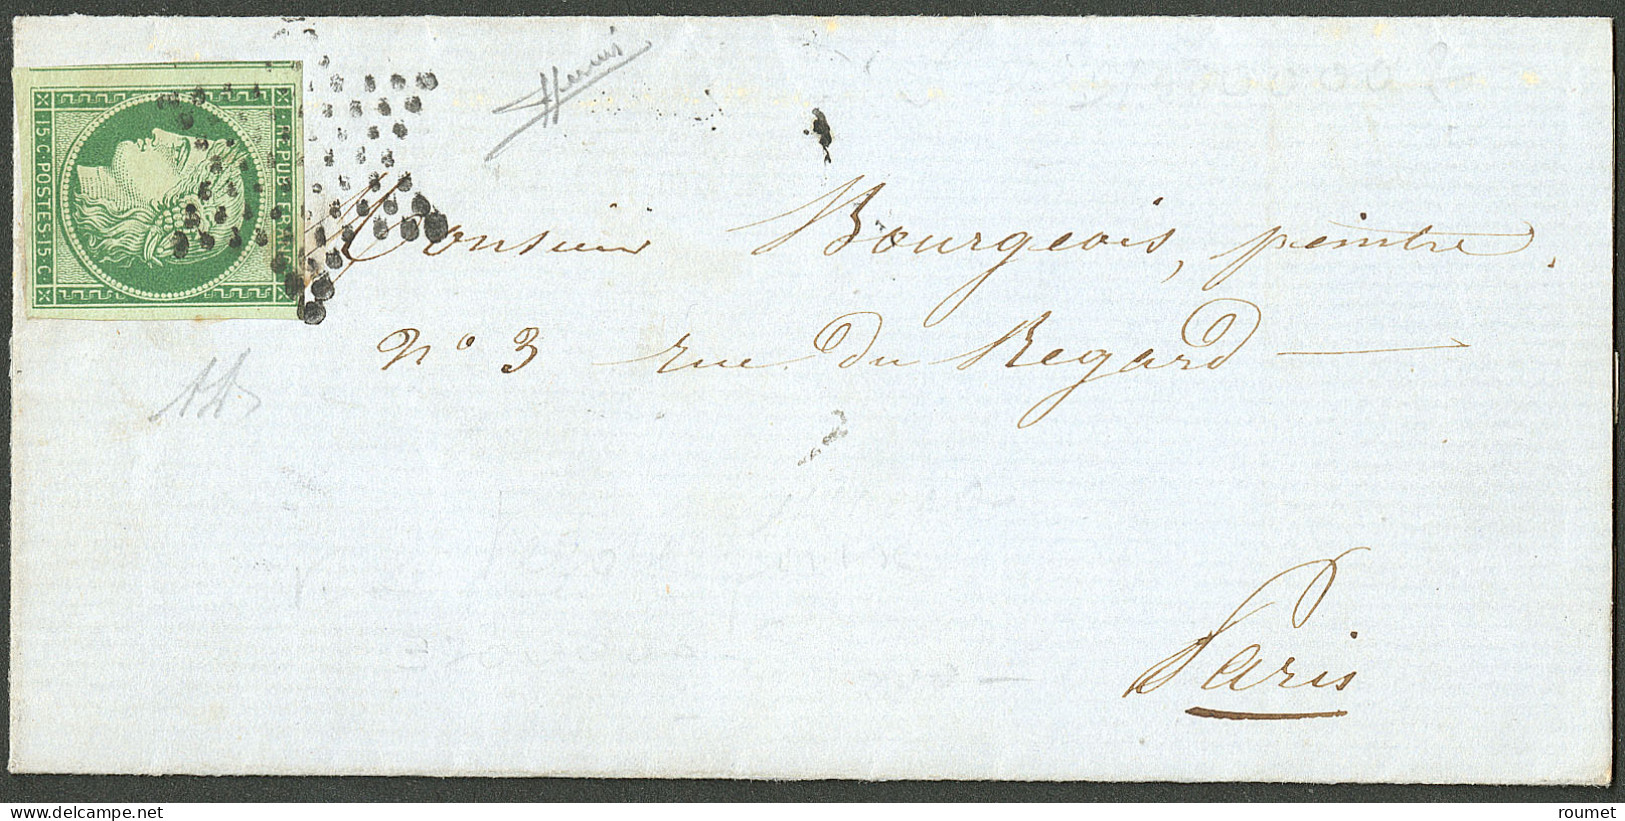 REPUB. FRANC.
15.C.POSTES.15.C.
Monsieur Bourgeois, peintre.
N° 3 rue du Regard
Paris
roumet